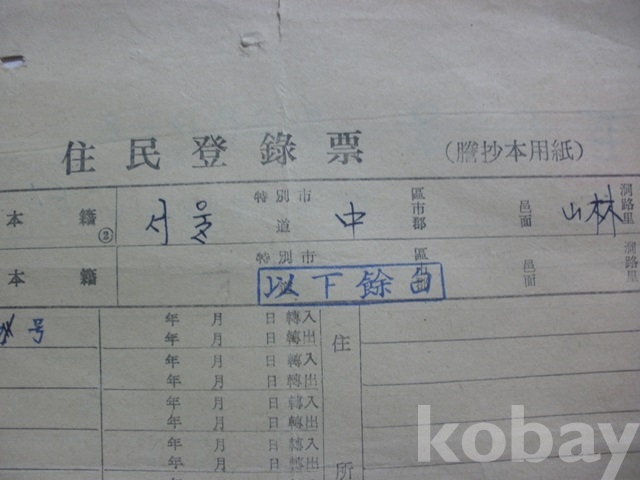 住民登錄票 (謄抄本用紙)
本籍 ② 서울 特別市 道 中 區市郡 邑面 山林 洞路里
本籍 特別市 區 邑面 洞路里
以下餘白
号 年 月 日 轉入 住
年 月 日 轉出
年 月 日 轉入
年 月 日 轉出
年 月 日 轉入
年 月 日 轉出
年 月 日 轉入
年 月 日 轉出 所
kobay